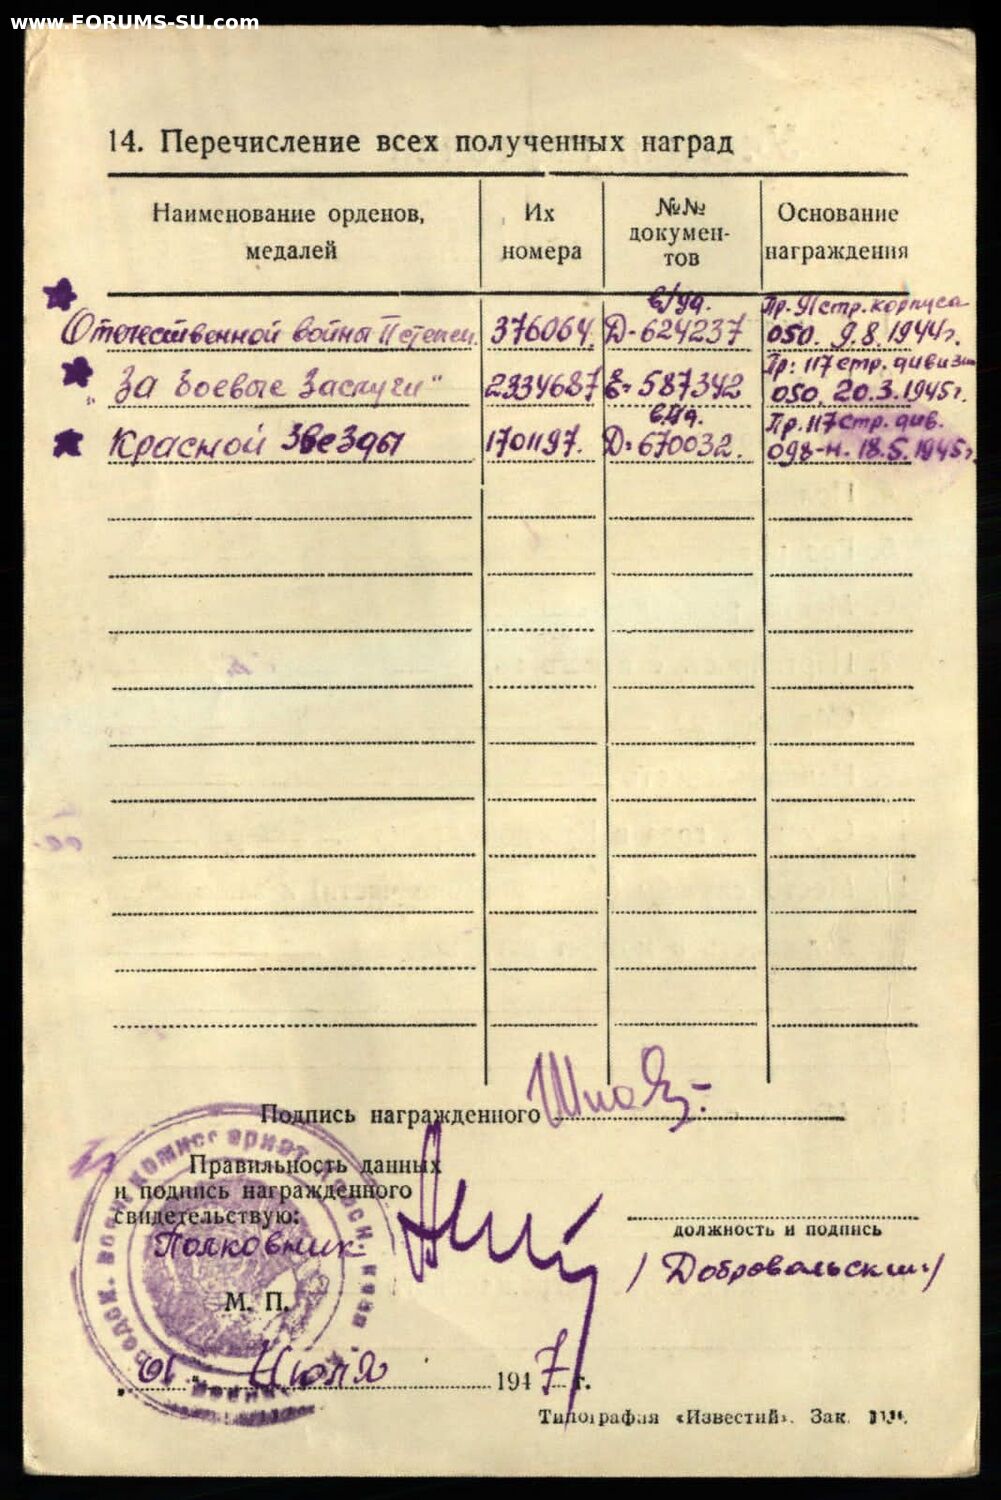 www.FORUMS-SU.com
14. Перечисление всех полученных наград
Наименование орденов,
медалей
Их
номера
№№
докумен-
тов
Основание
награждения
Отечественной войны II степен. 376064. в/уд. Д-624237 Пр. стр. корпуса 050. 9.8.1944г.
"За боевые заслуги" 2334687 Е-587342 Пр: 117 стр. дивизии 050. 20.3.1945г.
Красной Звезды 1701197. Д-670032. Пр. 117 стр. див. 098-н. 18.5.1945г.
Подпись награжденного
Правильность данных
и подпись награжденного
свидетельствую:
Полковник
должность и подпись
/Добровольский/
М. П.
"01" Июля 1947 г.
Типография «Известий». Зак.